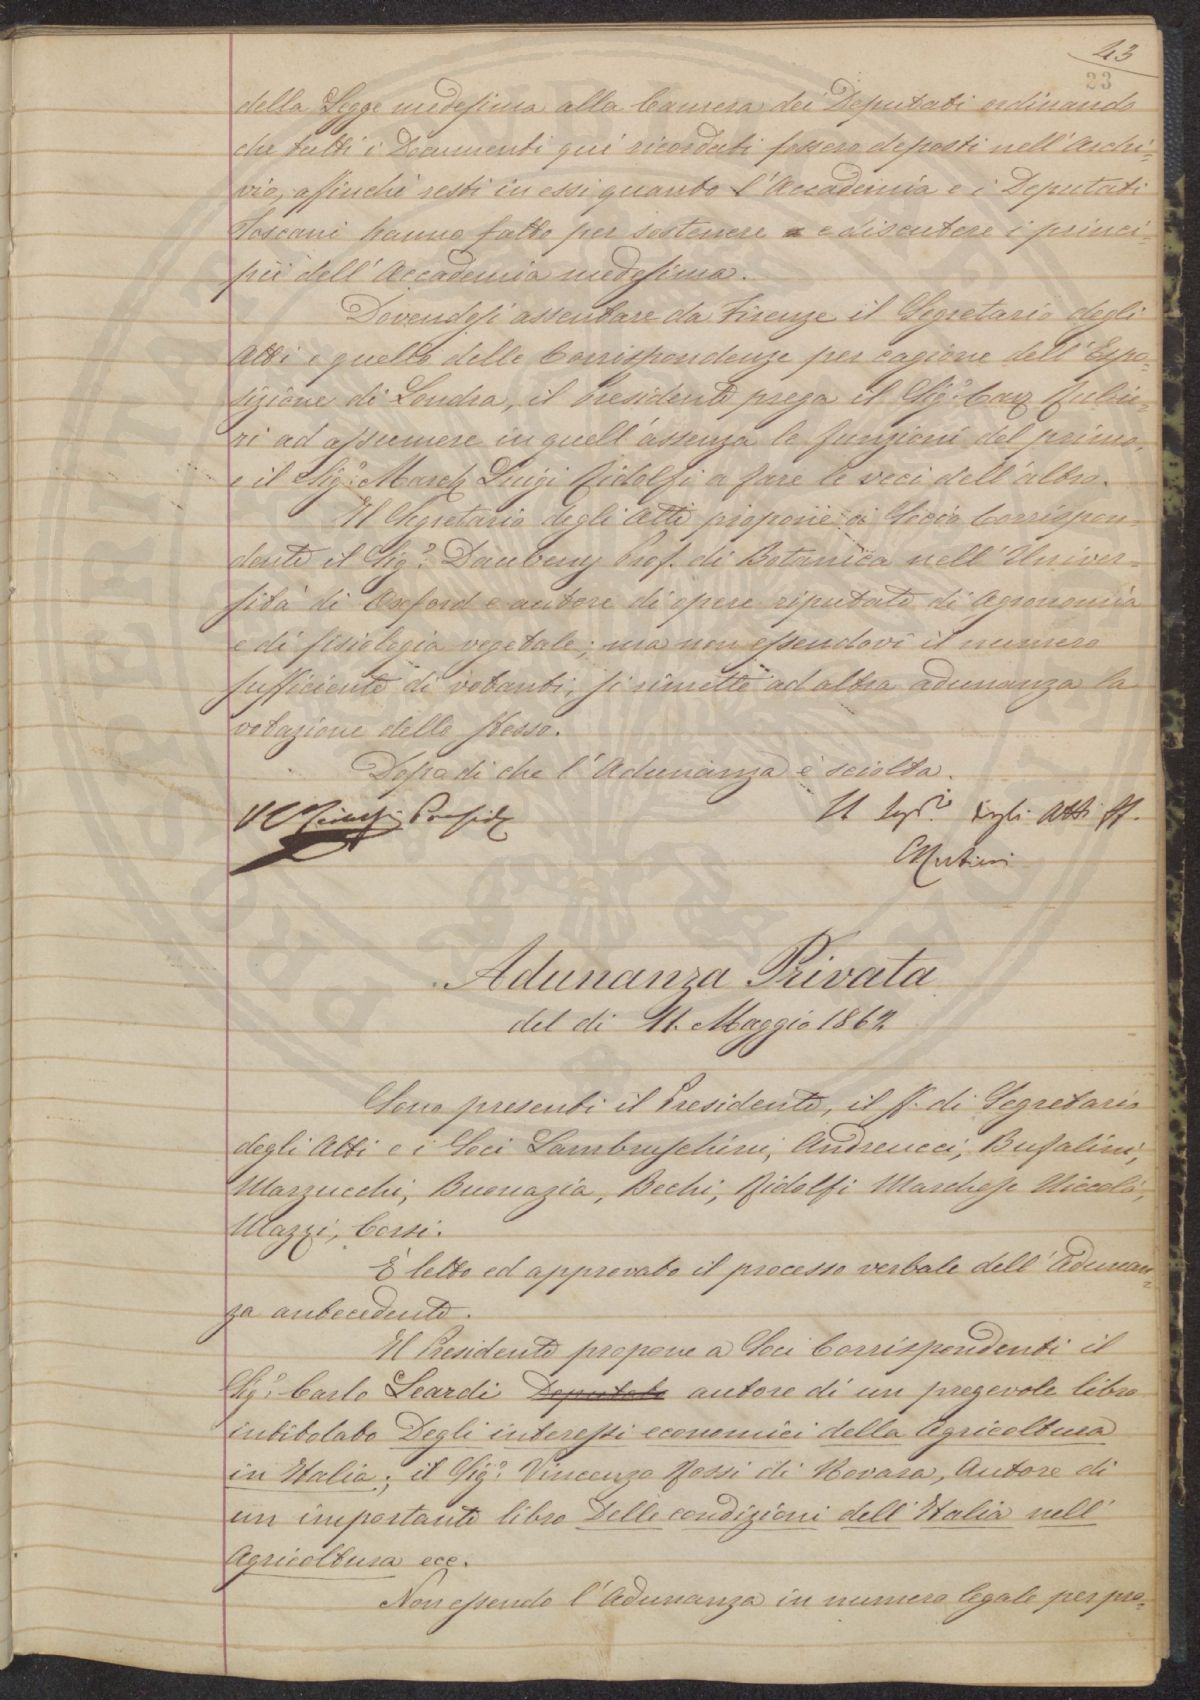 43
23
della Legge medesima alla Camera dei Deputati ordinando
che tutti i Documenti quì ricordati fossero deposti nell'Archi=
vio, affinchè resti in essi quanto l'Accademia e i Deputati
Toscani hanno fatto per sostenere e discutere i princi=
pii dell'Accademia medesima.
Dovendosi assentare da Firenze il Segretario degli
Atti e quello delle Corrispondenze per cagione dell'Espo=
sizione di Londra, il Presidente prega il Sig.r Cav. Rubie=
ri ad assumere in quell'assenza le funzioni del primo,
e il Sig.r March. Luigi Ridolfi a fare le veci dell'altro.
Il Segretario degli Atti propone a Socio Corrispon=
dente il Sig.r Daubeny Prof. di Botanica nell'Univer=
sità di Oxford e autore di opere riputate di Agronomia
e di fisiologia vegetale; ma non essendovi il numero
sufficiente di votanti, si rimette ad altra adunanza la
votazione dello stesso.
Dopo di che l'Adunanza è sciolta.
Presid.
Il Seg.rio degli Atti ff.
Adunanza Privata
del dì 11. Maggio 1862
Sono presenti il Presidente, il ff. di Segretario
degli Atti e i Soci Lambruschini, Andreucci, Bufalini,
Marzucchi, Buonazia, Bechi, Ridolfi Marchese Niccolò,
Mazzi, Corsi.
È letto ed approvato il processo verbale dell'Adunan=
za antecedente.
Il Presidente propone a Soci Corrispondenti il
Sig.r Carlo Leardi Deputato autore di un pregevole libro
intitolato Degli interessi economici della Agricoltura
in Italia; il Sig.r Vincenzo Rossi di Novara, Autore di
un importante libro Delle condizioni dell'Italia nell'
Agricoltura ecc.
Non essendo l'Adunanza in numero legale per pro=